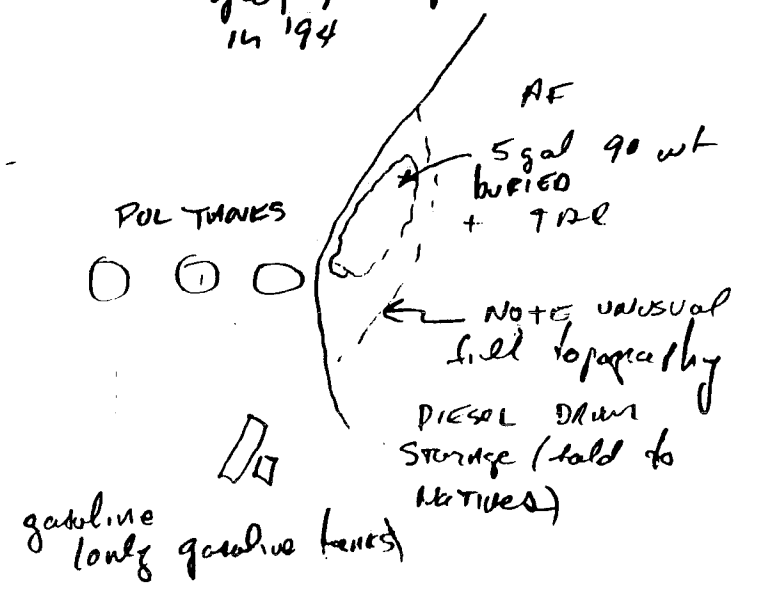 in '94
AF
5 gal 90 wt
BURIED
+ TAR
POL TANKS
NOTE UNUSUAL
fill topography
DIESEL DRUM
STORAGE (sold to
NATIVES)
gasoline
(only gasoline tanks)